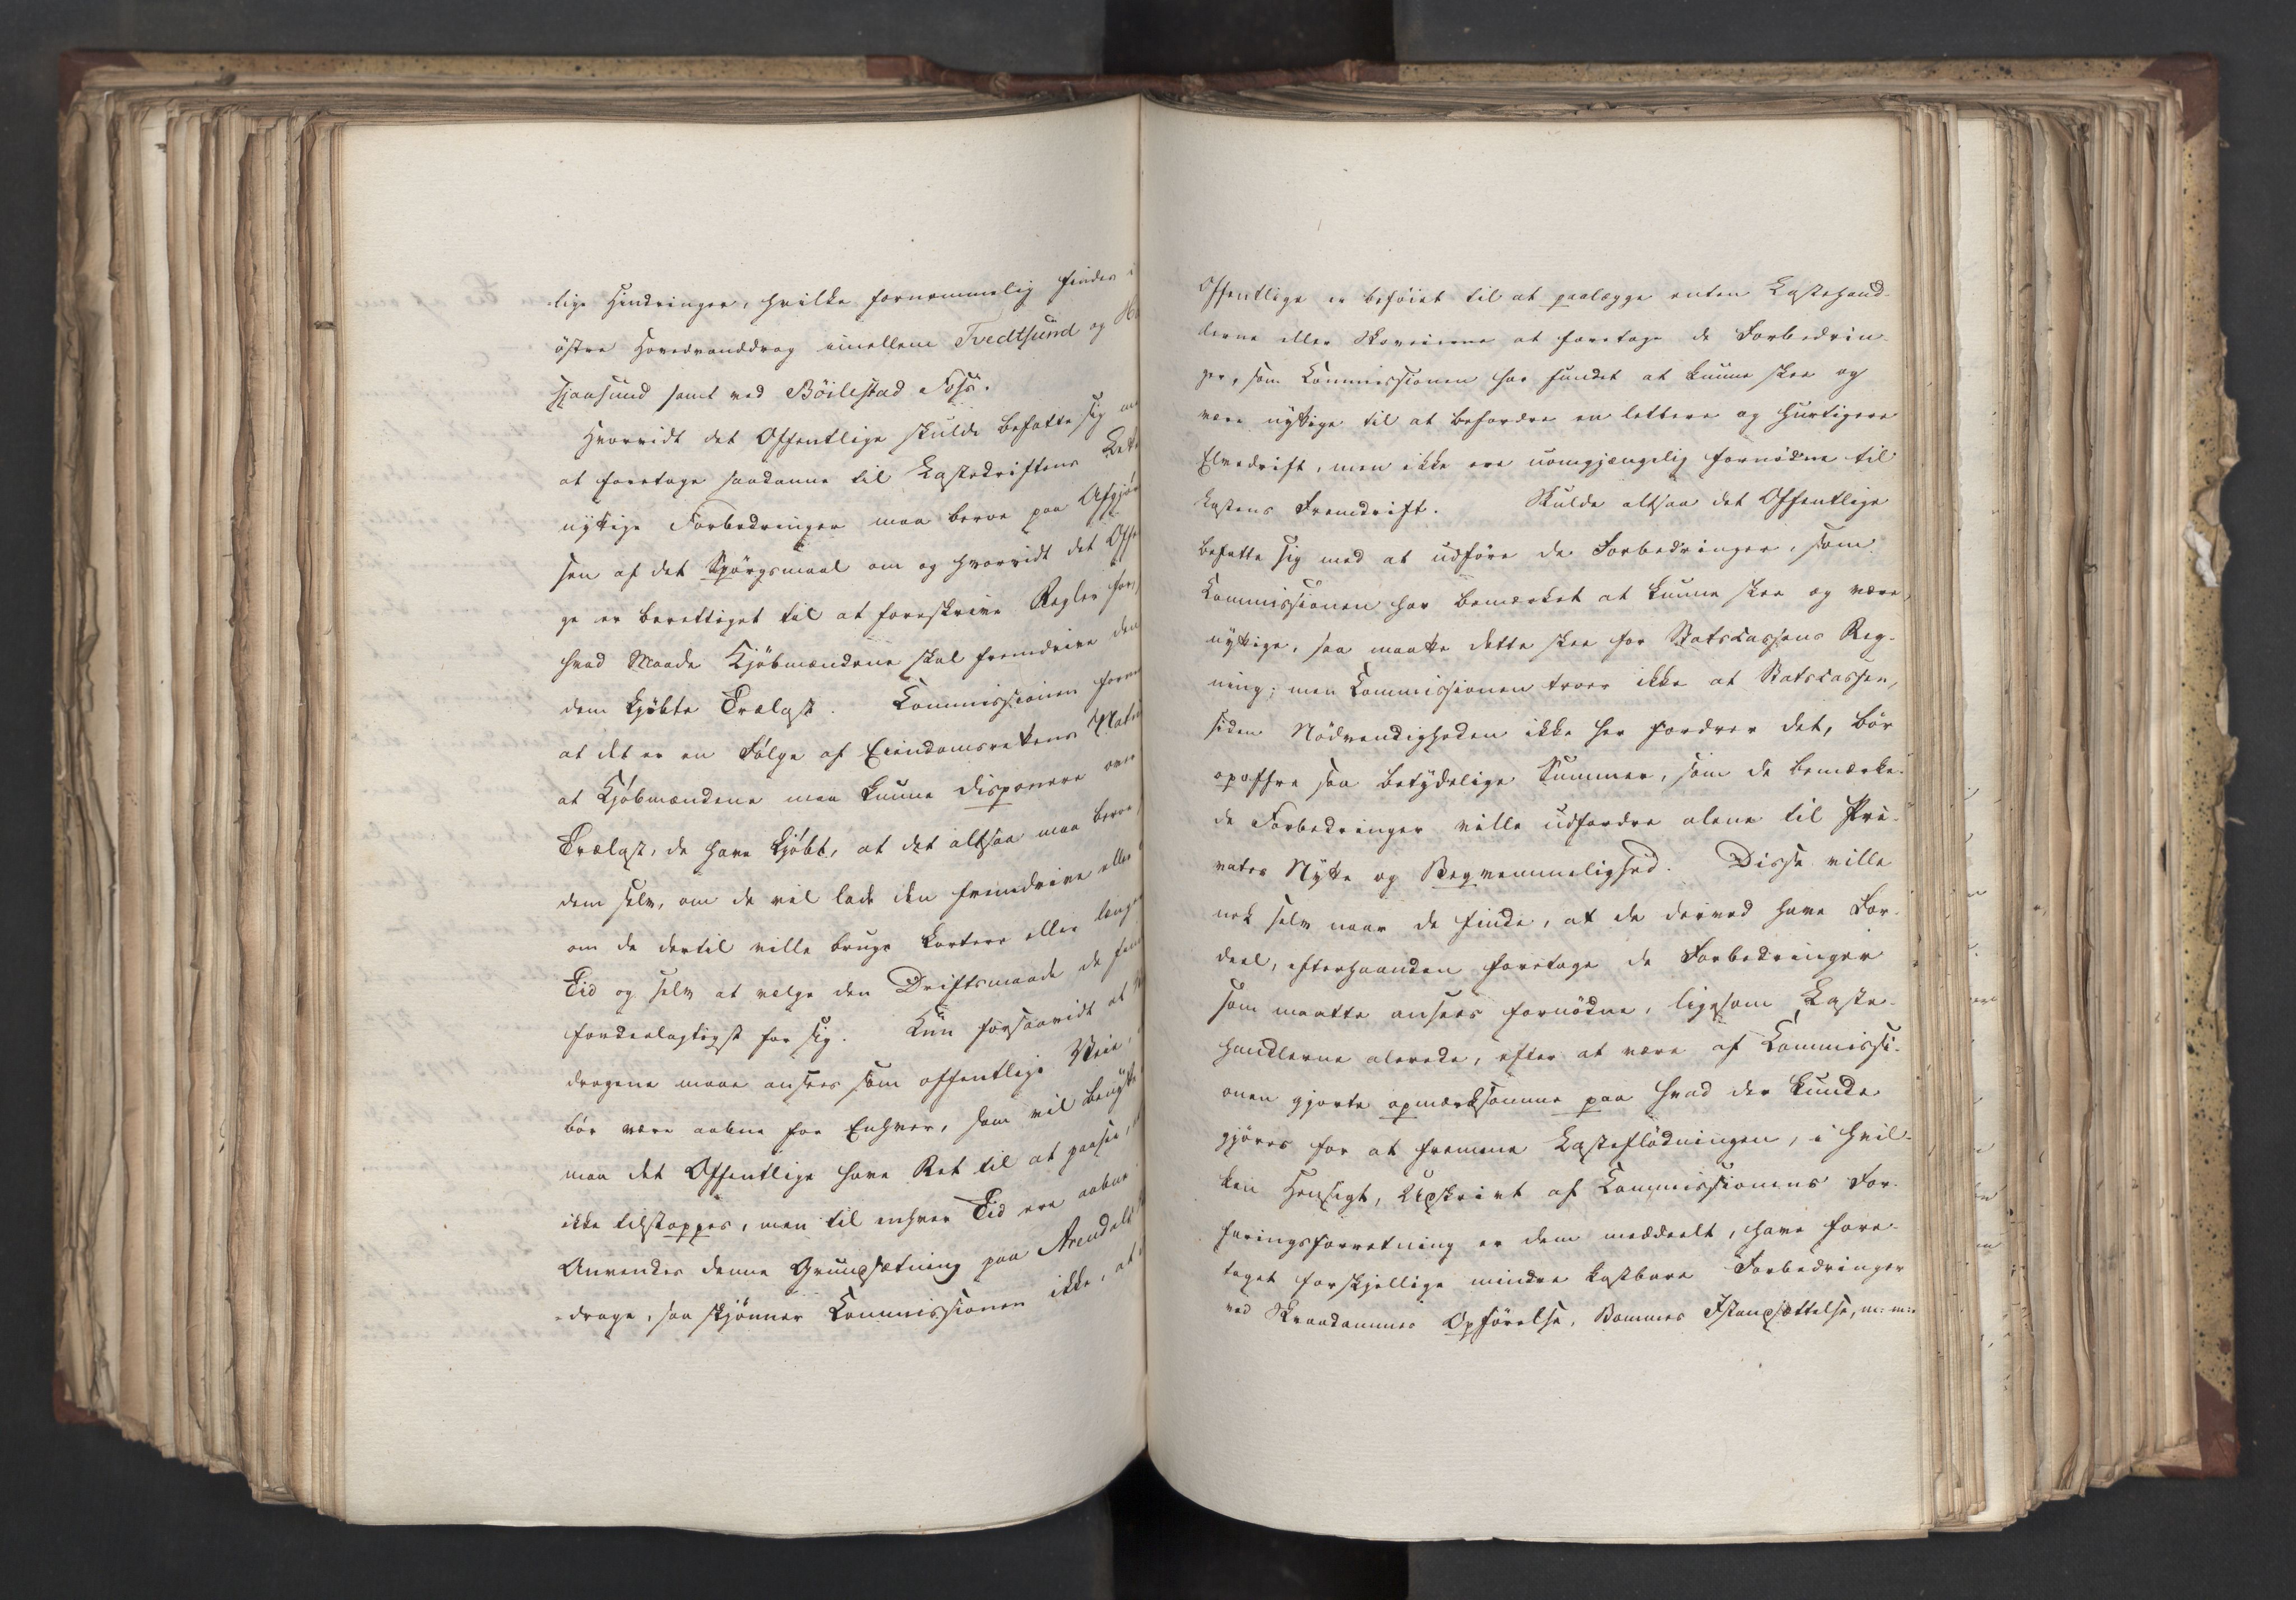 lige Hindringer, hvilke fornemmelig findes i
östre Hovedvanddrag imellem Tvedtsund og
Hjaasund samt ved Böilestad Foss.
Hvorvidt det Offentlige skulde befatte sig
at foretage saadanne til Lastedriftens
nyttige Forbedringer maa beroe paa Afgjör
sen af det Spörgsmaal om og hvorvidt det Offe
ge er berettiget til at foreskrive Regler for,
hvad Maade Kjöbmændene skal fremdrive den
dem kjöbte Trælast. Commissionen
at det er en Fölge af Eiendomsrettens Natu
at Kjöbmændene maa kunne disponere over
Trælast, de have kjöbt, at det altsaa maa beroe
dem selv, om de vil lade den fremdrive eller
om de dertil ville bruge kortere eller længe
Tid og selv at vælge den Driftsmaade de
fordeelagtigst for sig. Kun forsaavidt at
dragene maae ansees som offentlige Veie,
bör være aabne for Enhver, som vil benytte
maa det Offentlige have Ret til at paasee,
ikke tilstoppes, men til enhver Tid ere aabne
Anvendes denne Grundsætning paa Arendals
-drage, saa skjönner Commissionen ikke, at
Offentlige er beföiet til at paalægge enten Lastehand-
lerne eller Skoveierne at foretage de Forbedrin-
ger, som Commissionen har fundet at kunne skee og
være nyttige til at befordre en lettere og hurtigere
Elvedrift, men ikke ere uomgjængelig fornödne til
Lastens Fremdrift. Skulde altsaa det Offentlige
befatte sig med at udföre de Forbedringer, som
Commissionen har bemærket at kunne skee og være
nyttige, saa maatte dette skee for Statscassens Reg-
ning; men Commissionen troer ikke at Statscassen,
siden Nödvendigheden ikke her fordrer det, bör
opoffre saa betydelige Summer, som de bemærke-
de Forbedringer ville udfordre alene til Pri-
vates Nytte og Beqvemmelighed. Disse ville
nok selv naar de finde, at de derved have For-
deel, efterhaanden foretage de Forbedringer
som maatte ansees fornödne, ligesom Laste-
handlerne alerede, efter at være af Commissi-
onen gjorte opmærksomme paa hvad der kunde
gjöres for at fremme Lasteflödningen, i hvil-
ken Hensigt, Udskrivt af Commissionens For-
faringsforretning er dem meddeelt, have fore-
taget forskjellige mindre kostbare Forbedringer
ved Skraadammes Opförelse, Bommes Istandsættelse, m: m: